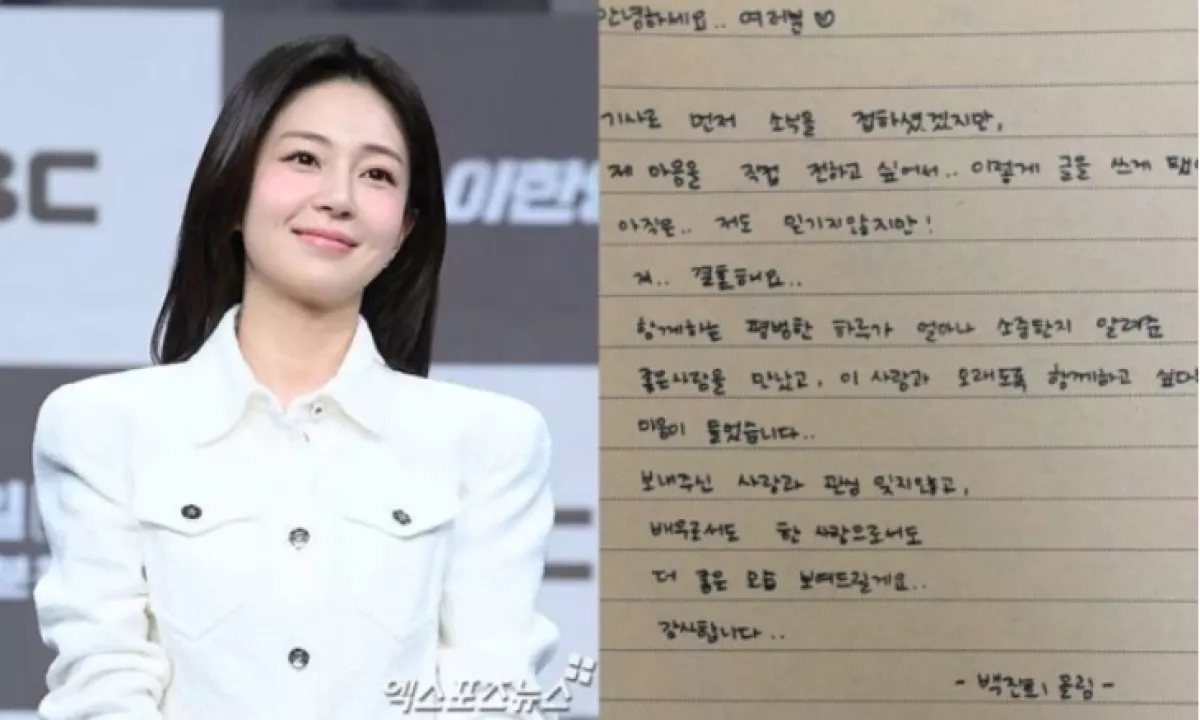 BC
이한영
엑스포츠뉴스
안녕하세요.. 여러분 ♡
기사로 먼저 소식을 접하셨겠지만,
제 마음을 직접 전하고 싶어서.. 이렇게 글을 쓰게 됐어
아직은.. 저도 믿기지않지만!
저.. 결혼해요..
함께하는 평범한 하루가 얼마나 소중한지 알려준
좋은사람을 만났고, 이 사람과 오래도록 함께하고 싶다
마음이 들었습니다..
보내주신 사랑과 관심 잊지않고,
배우로서도 한 사람으로서도
더 좋은 모습 보여드릴게요..
감사합니다..
- 백진희 올림 -